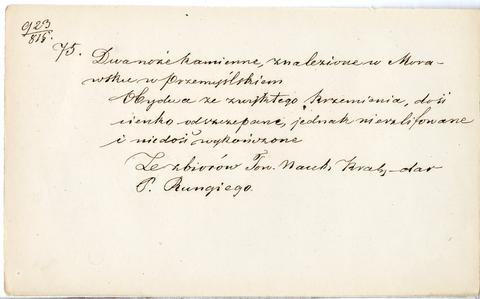 923/815.
75. Dwa noże kamienne, znalezione w Mora-
wsku w Przemyślskiem
Obydwa ze zwykłego krzemienia, dość
cienko odszczepane, jednak nieszlifowane
i niedość wykończone
Ze zbiorów Tow. Nauk. Krak, – dar
P. Rungiego.